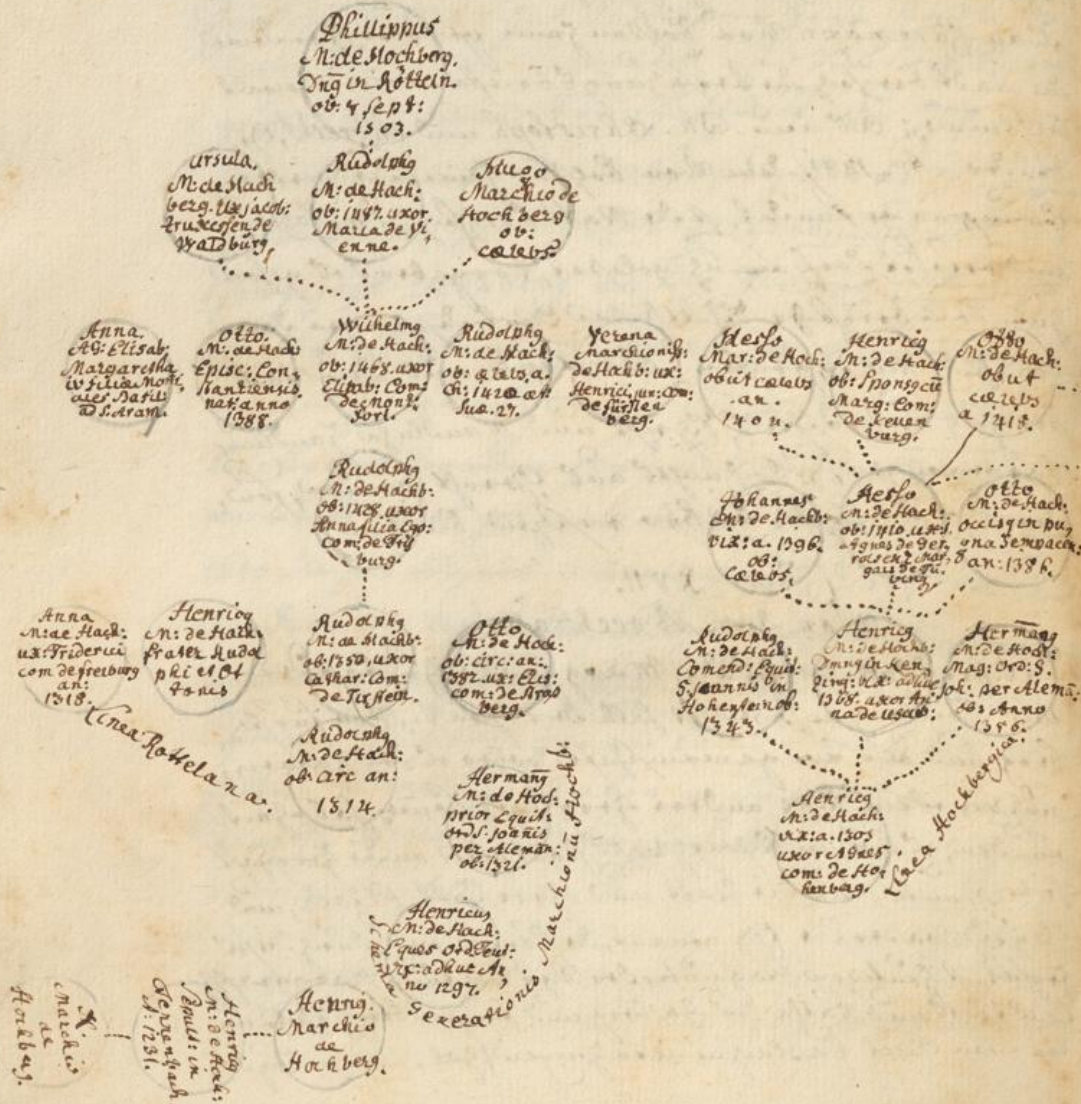 Phillippus
M: de Hochberg.
Dnq in Rötteln.
ob: 9 Sept:
1503.
Ursula.
M: de Hach
berg. ux jacob:
truxessen de
Waldburg.
Rudolphq
M: de Hach:
ob: 1487. uxor
Maria de Vi,
enne.
Hugo
Marchio de
Hochberg
ob:
cælebs.
Anna.
AG: Elisab:
Margaretha
iv filiæ Moni
ales Basil:
ad S. Aram.
Otto.
M: de Hach:
Episc: Con,
stantiensis
nat: anno
1388.
Wilhelmq
M: de Hach:
ob: 1468. uxor
Elisab: Com:
de Mont,
fort.
Rudolphq
M: de Hach:
ob: cælebs. a.
Ch: 1420 æt:
suæ. 27.
Verena
Marchioniss:
de Hachb: ux:
Henrici, jun: Com:
de Fürsten
berg.
Hesso
Mar: de Hoch:
obiit cælebs
an.
Henricq
M: de Hach:
ob: Sponsq cū
Marg: Com:
de
burg.
Otto
M: de Hach:
obiit
cælebs
a 1418.
Rudolphq
M: de Hachb:
ob: 1428. uxor
Anna filia Ego:
Com: de Fri
burg.
Johannes
M: de Hachb:
vix: a. 1396.
ob:
cælebs.
Hesso
M: de Hach:
ob: 1410. ux: 1.
Agnes de Ger,
rolsck 2 Mar,
garis de Tü
bing.
Otto
M: de Hach:
occisq in pu,
gna Sempacen,
an: 1386.
Anna
M: de Hach:
ux: Friderici
com de freiburg
an:
1318.
Henricq
M: de Hach.
frater Rudol
phi et Ot
tonis
Rudolphq
M: de Hachb:
ob: 1352. uxor
Cathar: Com:
de Tirstein.
Otto
M: de Hoch:
ob: circ: an:
1382. ux: Elis:
com: de Stras
berg.
Rudolphq
M: de Hach:
Comend: Equit:
S. Joannis in
Hohenrein ob:
1343.
Henricq
M: de Hochb:
Dminq in Ken,
zing: vix: adhuc
1368. uxor An,
na de Usub:
Hermānq
M: de Hoch:
Mag: Ord: S.
Joh: per Alemā:
ob: Anno
1356.
Linea Rottelana.
Rudolphq
M: de Hach:
ob: circ an:
1314.
Hermanq
M: de Hoch:
prior Equit:
ord S. Joañis
per Aleman:
ob: 1321.
Henricq
M: de Hach:
vix: a. 1303
uxor Agnes
com: de Ho,
henberg.
Linea Hochbergica.
Henricus
M: de Hach:
Eques ord: Teut:
vix: adhuc An,
no 1297.
Schema Generationis Marchionū Hochb:
N.
Marchio
de
Hochberg.
Henricq
M: de Hoch:
Sepult: in
Tennenbach
A: 1231.
Henriq.
Marchio
de
Hochberg.